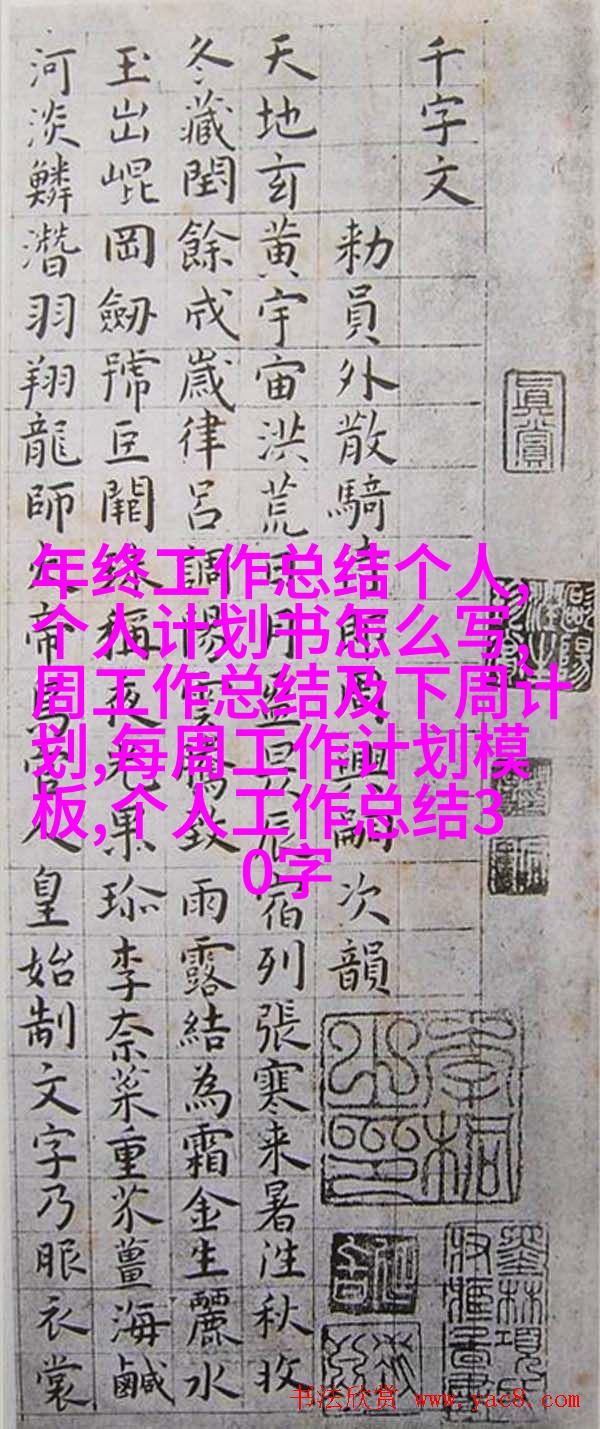 千字文
勑員外散騎侍郎周興嗣次韻
天地玄黃宇宙洪荒日月盈昃辰宿列張寒来暑往秋收
冬藏閏餘成歲律呂調陽雲騰致雨露結為霜金生麗水
玉出崐岡劒號巨闕珠稱夜光果珎李柰菜重芥薑海鹹
河淡鱗潛羽翔龍師火帝鳥官人皇始制文字乃服衣裳
真賞
年终工作总结个人,
个人计划书怎么写,
周工作总结及下周计
划,每周工作计划模
板,个人工作总结3
0字
书法欣赏 www.yac8.com